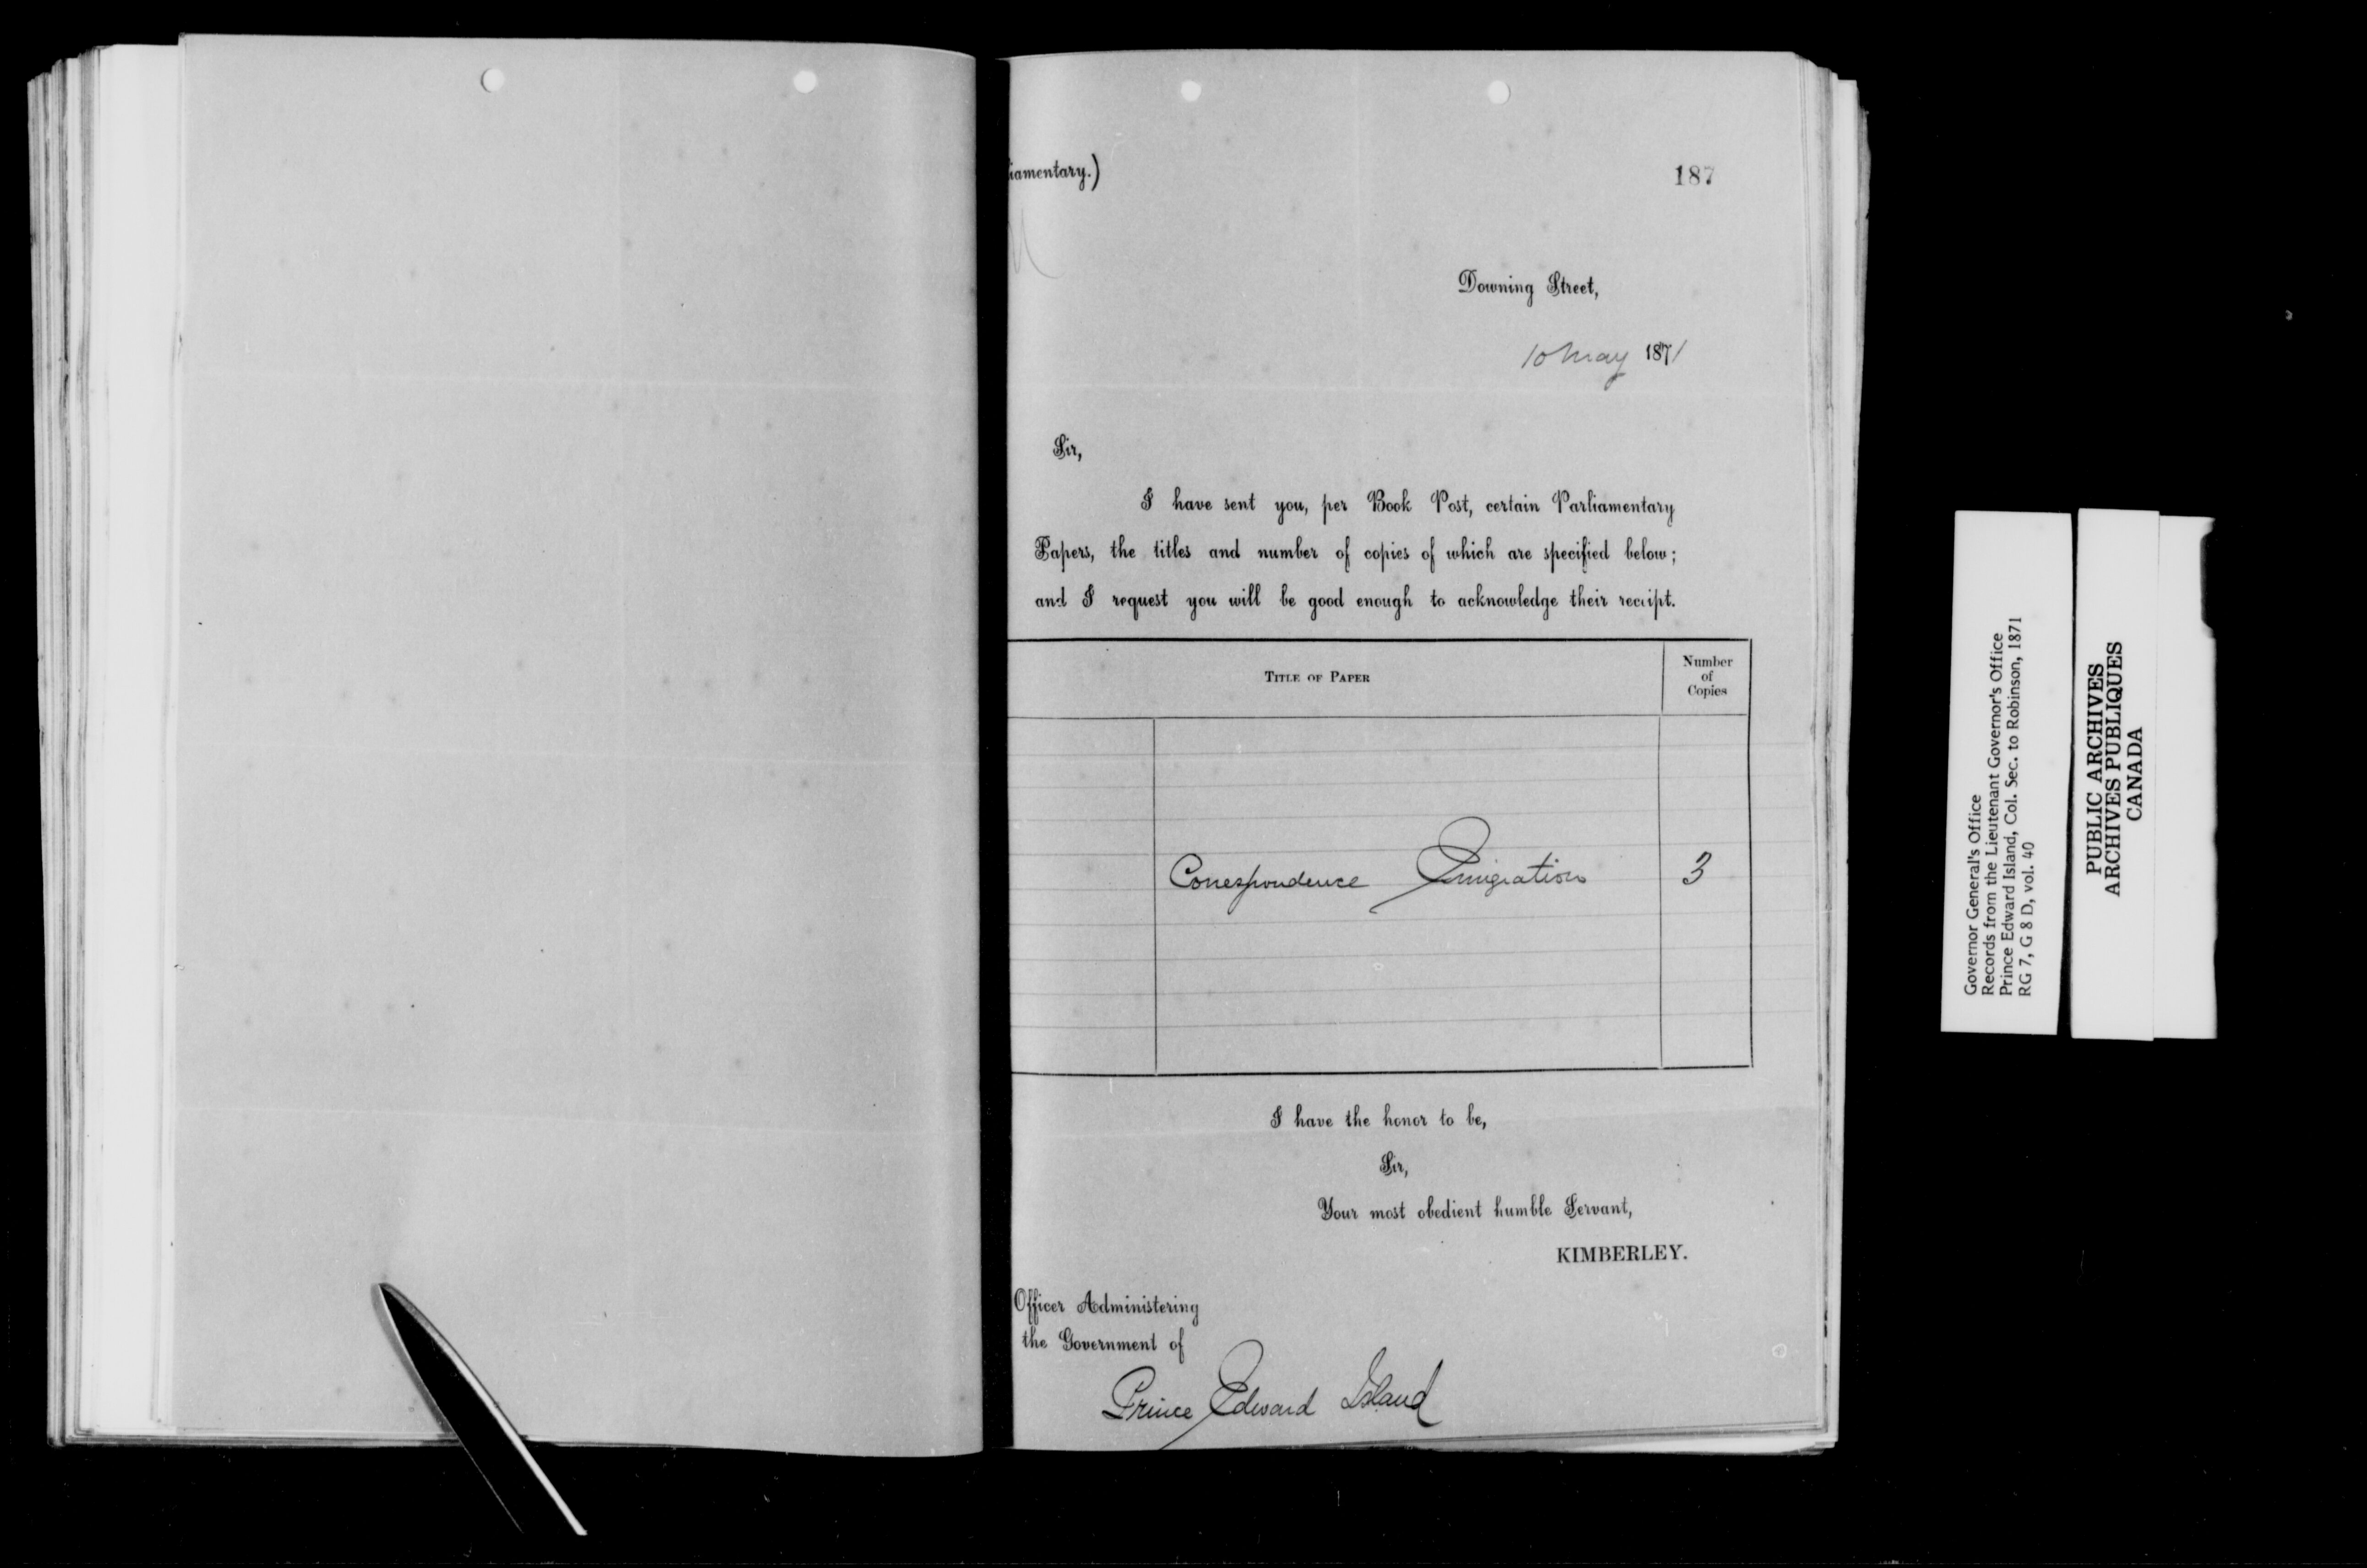 iamentary.)
187
Downing Street,
10 May 1871
Sir,
I have sent you, per Book Post, certain Parliamentary
Papers, the titles and number of copies of which are specified below;
and I request you will be good enough to acknowledge their receipt.
TITLE OF PAPER
Number
of
Copies
Correspondence Emigration 3
I have the honor to be,
Sir,
Your most obedient humble Servant,
KIMBERLEY.
Officer Administering
the Government of
Prince Edward Island
Governor General's Office
Records from the Lieutenant Governor's Office
Prince Edward Island, Col. Sec. to Robinson, 1871
RG 7, G 8 D, vol. 40
PUBLIC ARCHIVES
ARCHIVES PUBLIQUES
CANADA